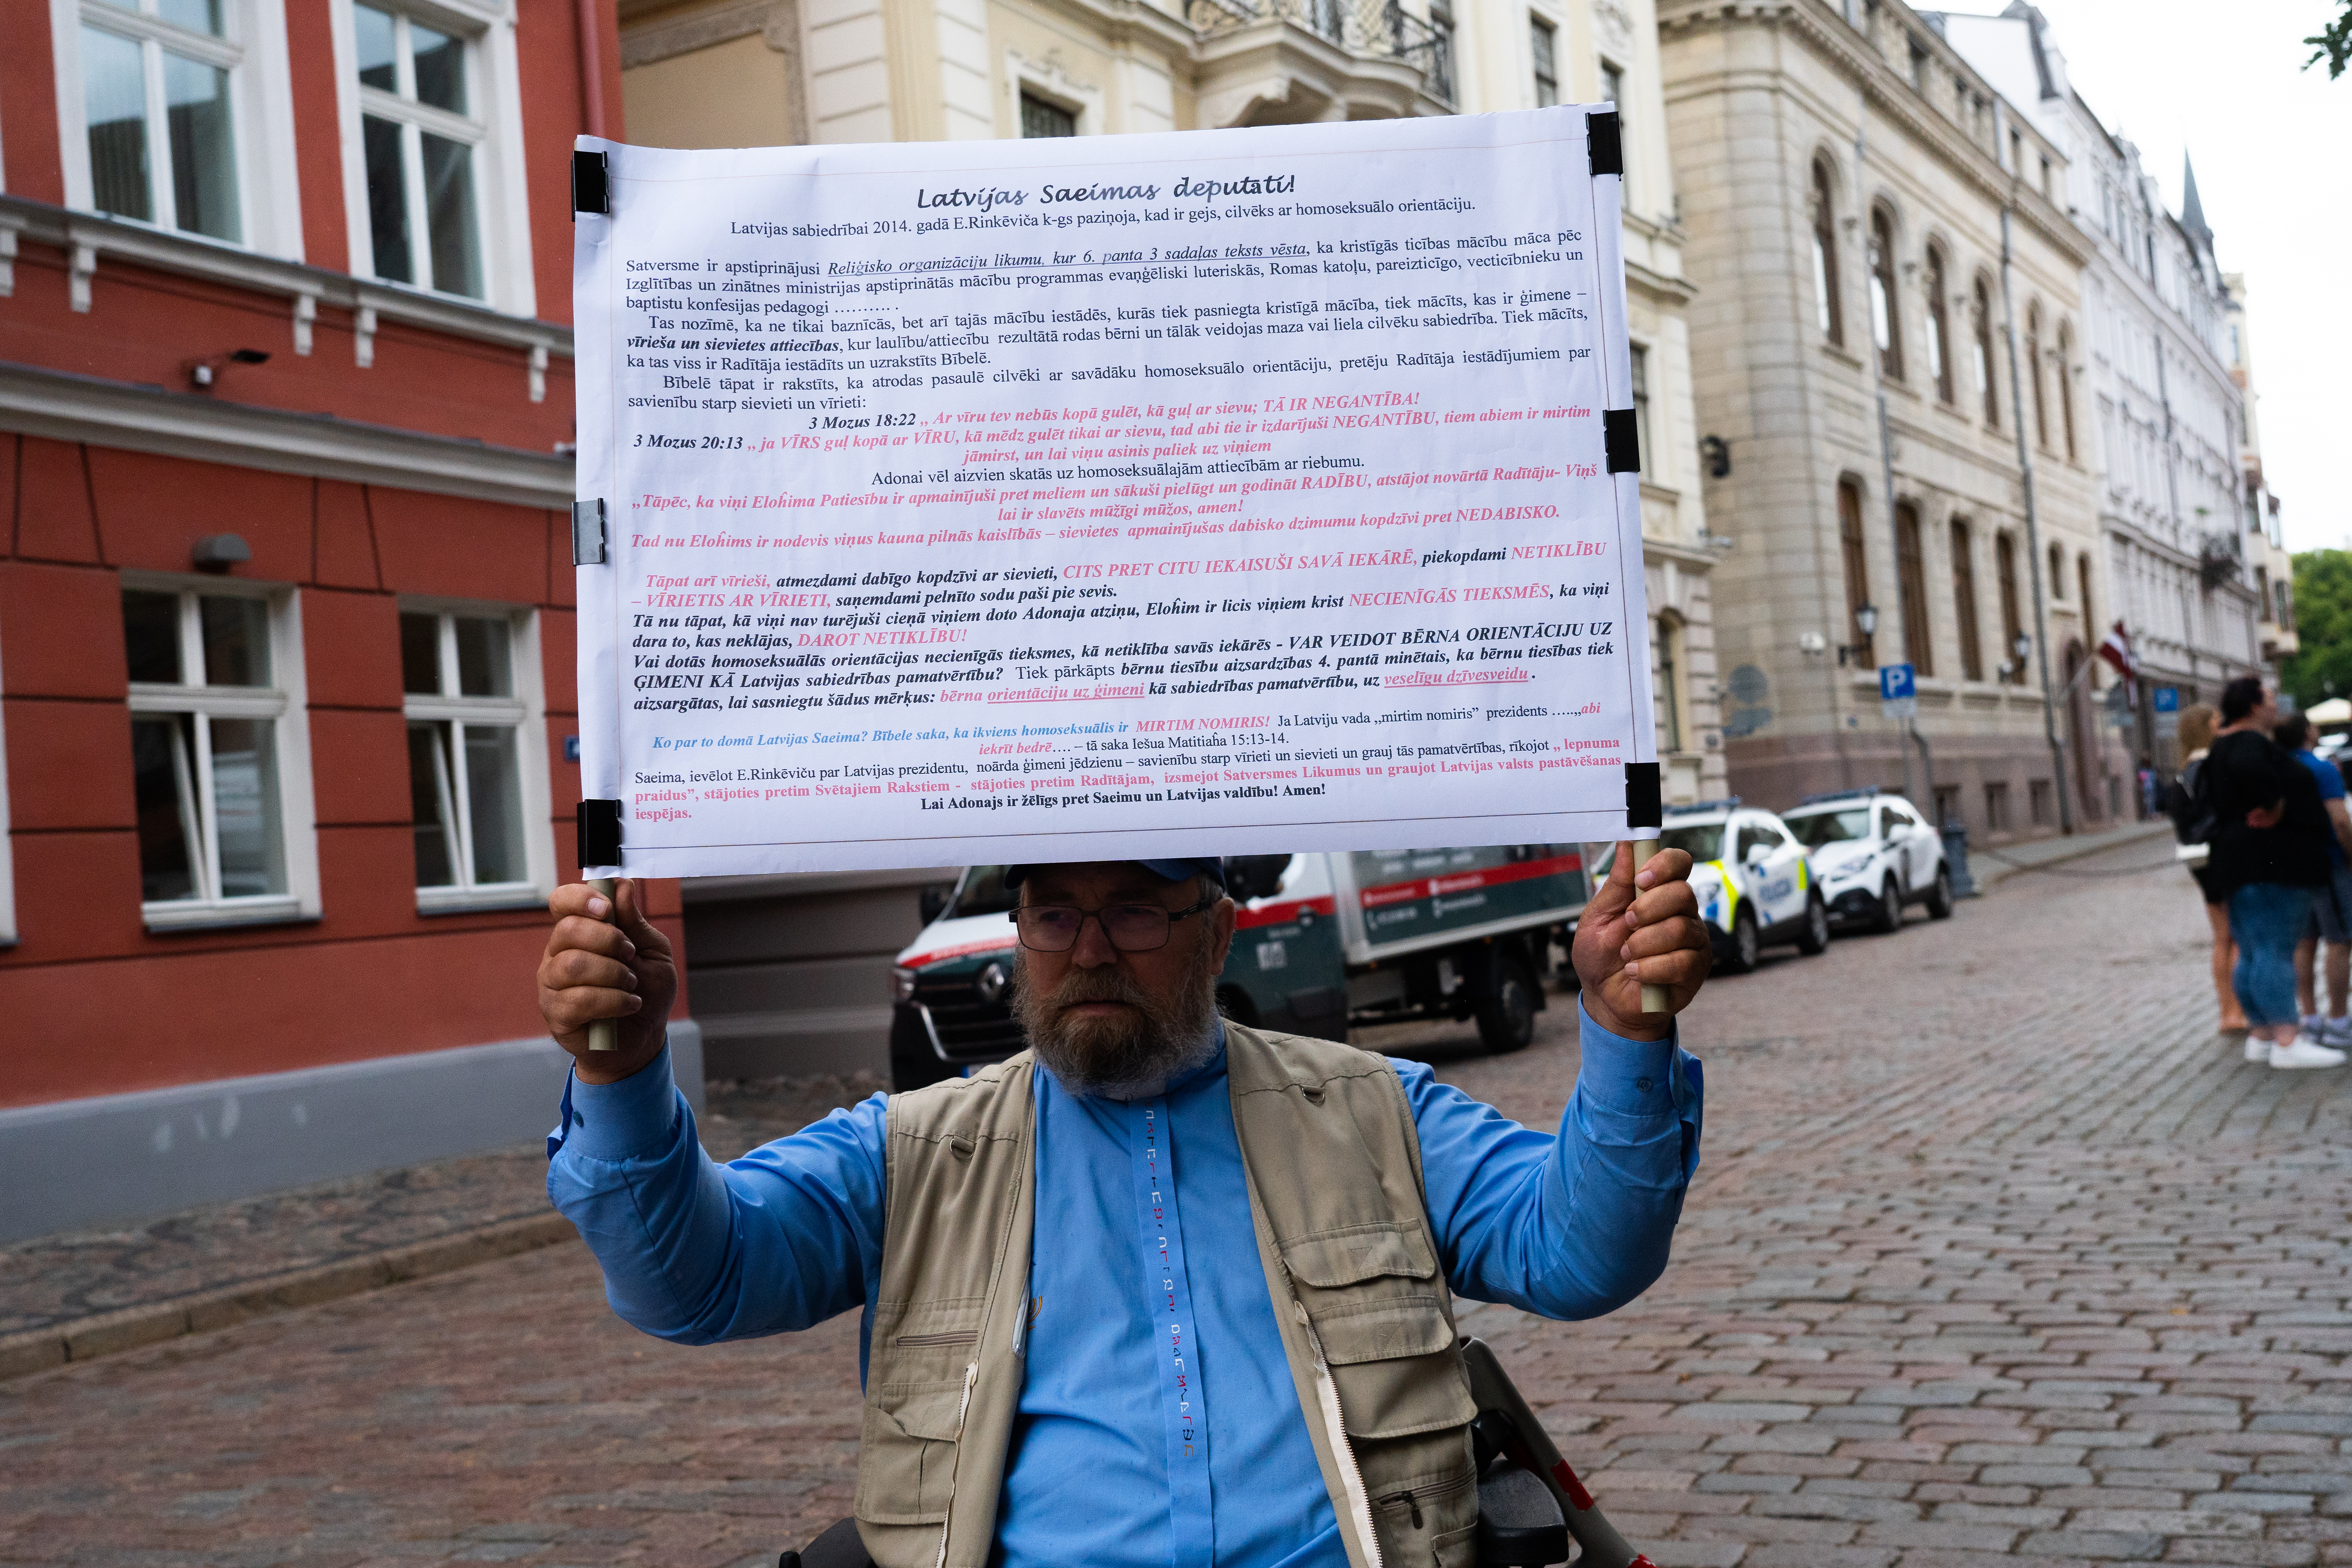 Latvijas Saeimas deputāti!
Latvijas sabiedrībai 2014. gadā E.Rinkēviča k-gs paziņoja, kad ir gejs, cilvēks ar homoseksuālo orientāciju.
Satversme ir apstiprinājusi Reliģisko organizāciju likumu, kur 6. panta 3 sadaļas teksts vēsta, ka kristīgās ticības mācību māca pēc
Izglītības un zinātnes ministrijas apstiprinātās mācību programmas evaņģēliski luteriskās, Romas katoļu, pareizticīgo, vecticībnieku un
baptistu konfesijas pedagogi ………. .
Tas nozīmē, ka ne tikai baznīcās, bet arī tajās mācību iestādēs, kurās tiek pasniegta kristīgā mācība, tiek mācīts, kas ir ģimene –
vīrieša un sievietes attiecības, kur laulību/attiecību rezultātā rodas bērni un tālāk veidojas maza vai liela cilvēku sabiedrība. Tiek mācīts,
ka tas viss ir Radītāja iestādīts un uzrakstīts Bībelē.
Bībelē tāpat ir rakstīts, ka atrodas pasaulē cilvēki ar savādāku homoseksuālo orientāciju, pretēju Radītāja iestādījumiem par
savienību starp sievieti un vīrieti:
3 Mozus 18:22 „ Ar vīru tev nebūs kopā gulēt, kā guļ ar sievu; TĀ IR NEGANTĪBA!
3 Mozus 20:13 „ ja VĪRS guļ kopā ar VĪRU, kā mēdz gulēt tikai ar sievu, tad abi tie ir izdarījuši NEGANTĪBU, tiem abiem ir mirtim
jāmirst, un lai viņu asinis paliek uz viņiem
Adonai vēl aizvien skatās uz homoseksuālajām attiecībām ar riebumu.
„Tāpēc, ka viņi Elohima Patiesību ir apmainījuši pret meliem un sākuši pielūgt un godināt RADĪBU, atstājot novārtā Radītāju- Viņš
lai ir slavēts mūžīgi mūžos, amen!
Tad nu Elohims ir nodevis viņus kauna pilnās kaislībās – sievietes apmainījušas dabisko dzimumu kopdzīvi pret NEDABISKO.
Tāpat arī vīrieši, atmezdami dabīgo kopdzīvi ar sievieti, CITS PRET CITU IEKAISUŠI SAVĀ IEKĀRĒ, piekopdami NETIKLĪBU
– VĪRIETIS AR VĪRIETI, saņemdami pelnīto sodu paši pie sevis.
Tā nu tāpat, kā viņi nav turējuši cieņā viņiem doto Adonaja atziņu, Elohim ir licis viņiem krist NECIENĪGĀS TIEKSMĒS, ka viņi
dara to, kas neklājas, DAROT NETIKLĪBU!
Vai dotās homoseksuālās orientācijas necienīgās tieksmes, kā netiklība savās iekārēs - VAR VEIDOT BĒRNA ORIENTĀCIJU UZ
ĢIMENI KĀ Latvijas sabiedrības pamatvērtību? Tiek pārkāpts bērnu tiesību aizsardzības 4. pantā minētais, ka bērnu tiesības tiek
aizsargātas, lai sasniegtu šādus mērķus: bērna orientāciju uz ģimeni kā sabiedrības pamatvērtību, uz veselīgu dzīvesveidu .
Ko par to domā Latvijas Saeima? Bībele saka, ka ikviens homoseksuālis ir MIRTIM NOMIRIS! Ja Latviju vada „mirtim nomiris” prezidents …..„abi
iekrīt bedrē…. – tā saka Iešua Matitiaha 15:13-14.
Saeima, ievēlot E.Rinkēviču par Latvijas prezidentu, noārda ģimeni jēdzienu – savienību starp vīrieti un sievieti un grauj tās pamatvērtības, rīkojot „ lepnuma
praidus”, stājoties pretim Svētajiem Rakstiem - stājoties pretim Radītājam, izsmejot Satversmes Likumus un graujot Latvijas valsts pastāvēšanas
iespējas.
Lai Adonajs ir žēlīgs pret Saeimu un Latvijas valdību! Amen!
P